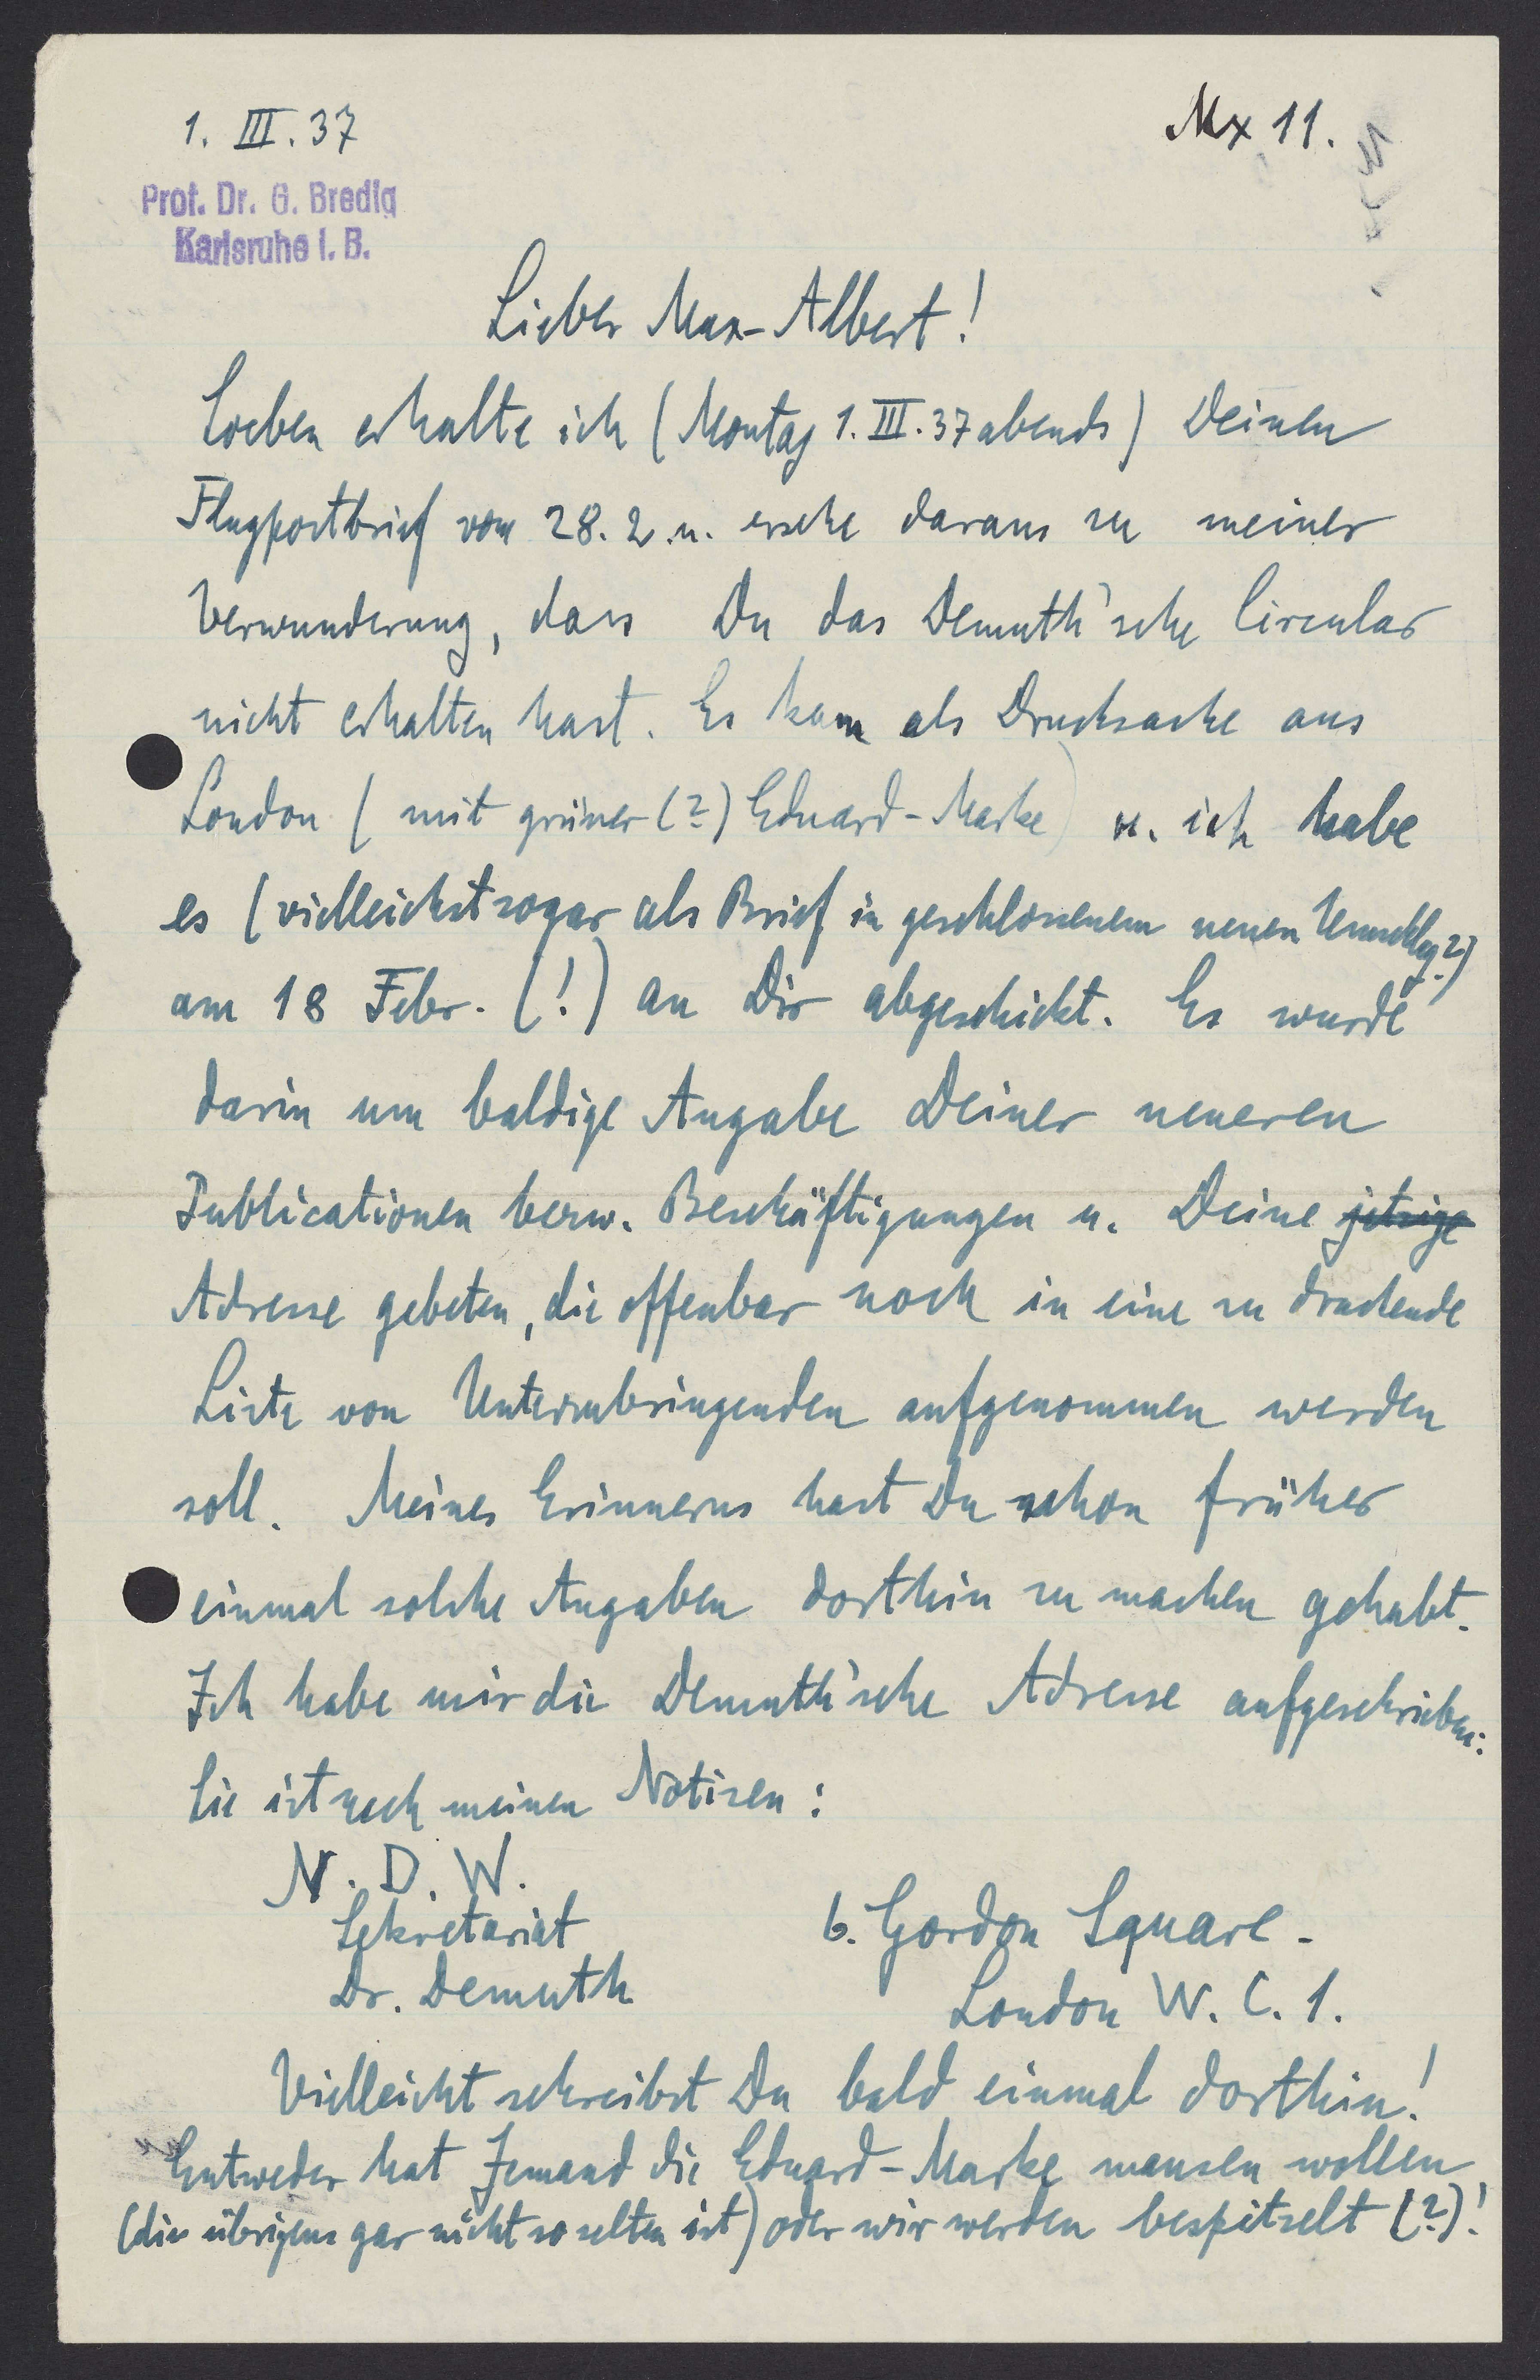 1. III. 37
Mx 11.
Prof. Dr. G. Bredig
Karlsruhe i. B.
Lieber Max-Albert!
Soeben erhalte ich (Montag 1. III. 37 abends) Deinen
Flugpostbrief vom 28. 2. u. ersehe daraus zu meiner
Verwunderung, dass Du das Demuth'sche Circular
nicht erhalten hast. Es kam als Drucksache aus
London (mit grüner (?) Eduard-Marke) u. ich habe
es (vielleicht sogar als Brief in geschlossenem neuen Umschlag?)
am 18 Febr. (!) an Dir abgeschickt. Es wurde
darin um baldige Angabe Deiner neueren
Publicationen bezw. Beschäftigungen u. Deine jetzige
Adresse gebeten, die offenbar noch in eine zu druckende
Liste von Unterzubringenden aufgenommen werden
soll. Meines Erinnerns hast Du schon früher
einmal solche Angaben dorthin zu machen gehabt.
Ich habe mir die Demuth'sche Adresse aufgeschrieben:
Sie ist nach meinen Notizen:
N. D. W.
Sekretariat
Dr. Demuth
6. Gordon Square.
London W. C. 1.
Vielleicht schreibst Du bald einmal dorthin!
Entweder hat Jemand die Eduard-Marke mausen wollen
(die übrigens gar nicht so selten ist) oder wir werden bespitzelt (?)!